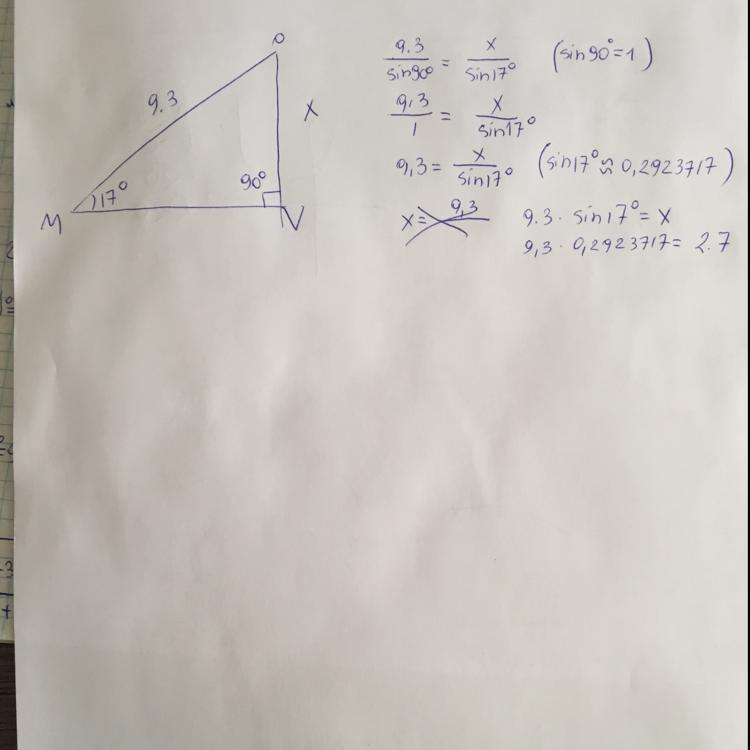 O
9.3
x
17°
90°
M
N
9.3/sin90° = x/sin17° (sin90°=1)
9,3/1 = x/sin17°
9,3 = x/sin17° (sin17° ≈ 0,2923717)
x= 9,3
9.3 · sin17° = x
9,3 · 0,2923717 = 2.7